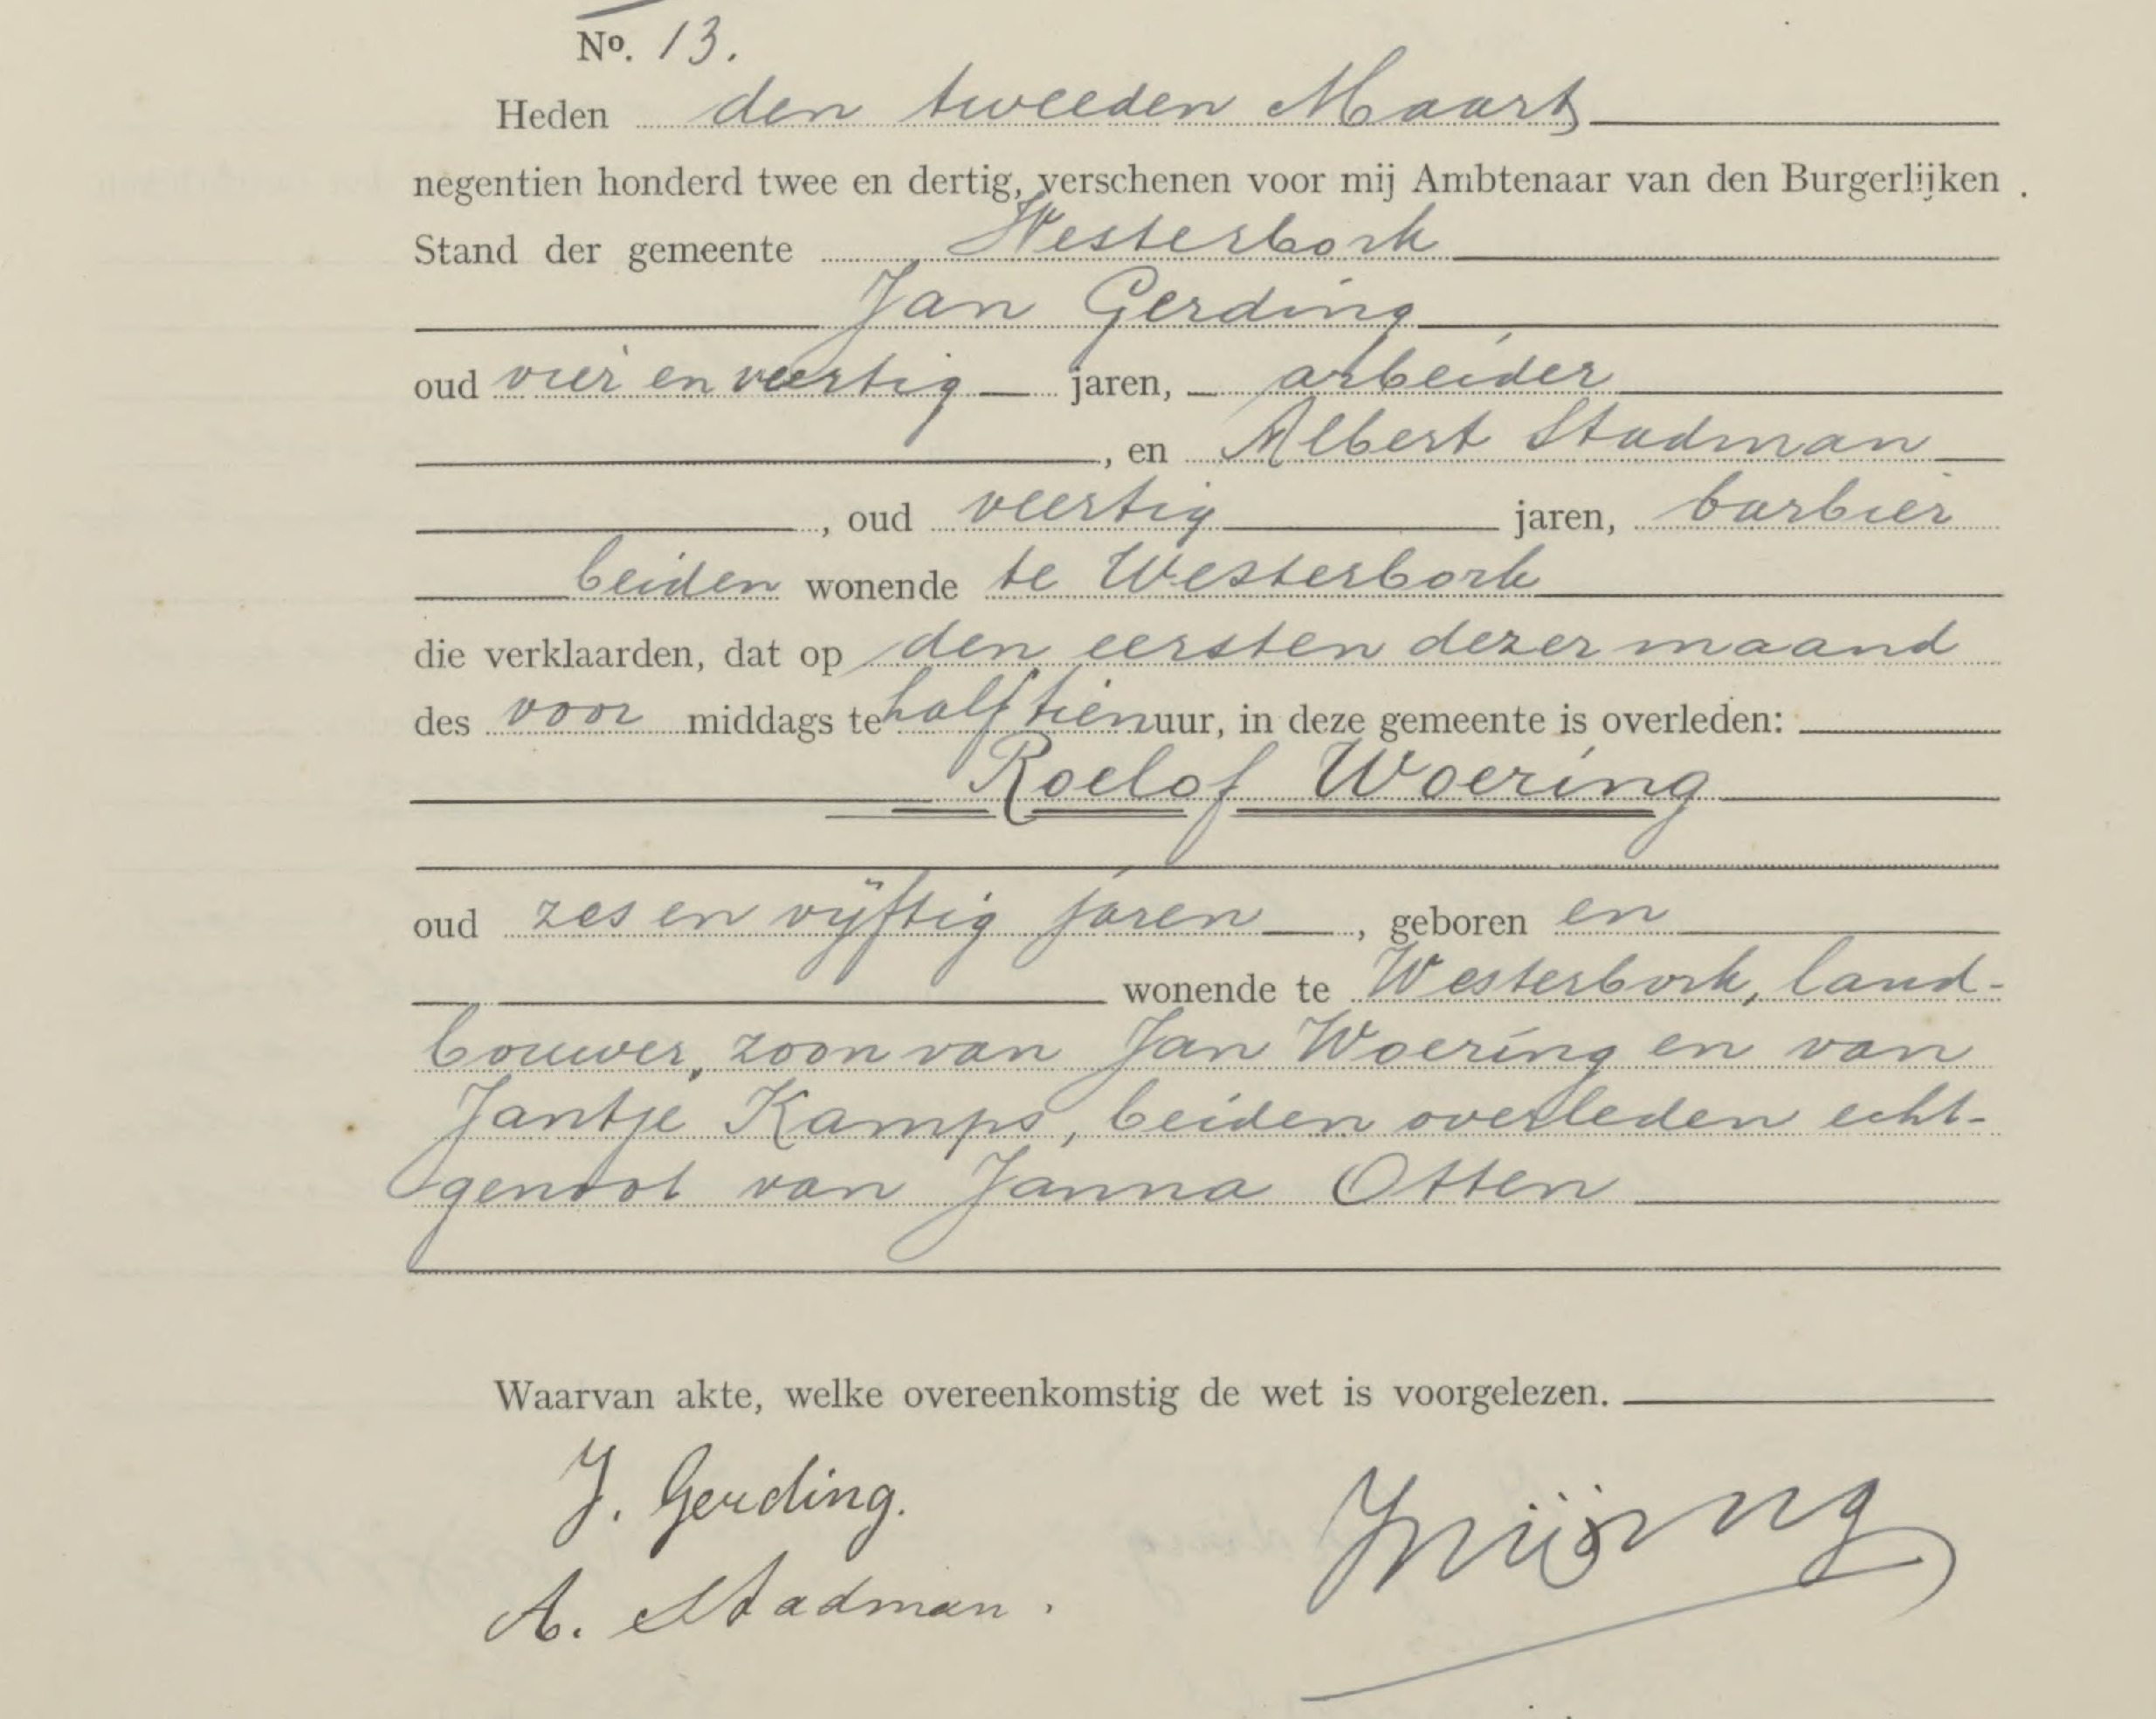 No. 13.
Heden den tweeden Maart
negentien honderd twee en dertig, verschenen voor mij Ambtenaar van den Burgerlijken
Stand der gemeente Westerbork
Jan Gerding
oud vier en veertig jaren, arbeider
, en Albert Stadman
, oud veertig jaren, barbier
beiden wonende te Westerbork
die verklaarden, dat op den eersten dezer maand
des voor middags te half tien uur, in deze gemeente is overleden:
Roelof Woering
oud zes en vijftig jaren, geboren en
wonende te Westerbork, land-
bouwer, zoon van Jan Woering en van
Jantje Kamps, beiden overleden echt-
genoot van Janna Otten
Waarvan akte, welke overeenkomstig de wet is voorgelezen.
J. Gerding.
A. Stadman.